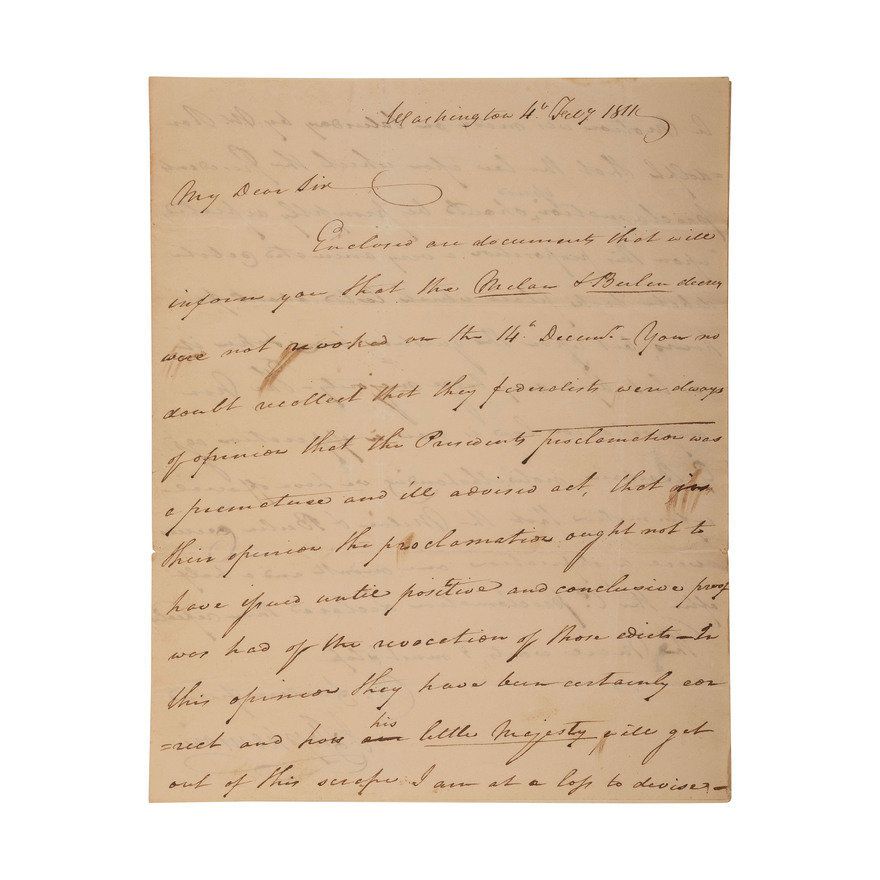 Washington 4th Feby 1811
My Dear Sir
Enclosed are documents that will
inform you that the Milan & Berlin decrees
were not revoked on the 14th Decemr. You no
doubt recollect that they federalists were always
of opinion that the Presidents proclamation was
a premature and ill advised act, that in
their opinion the proclamation ought not to
have issued untill positive and conclusive proof
was had of the revocation of those edicts – In
this opinion they have been certainly cor
=rect and how his little Majesty will get
out of this scrape I am at a loss to devise –